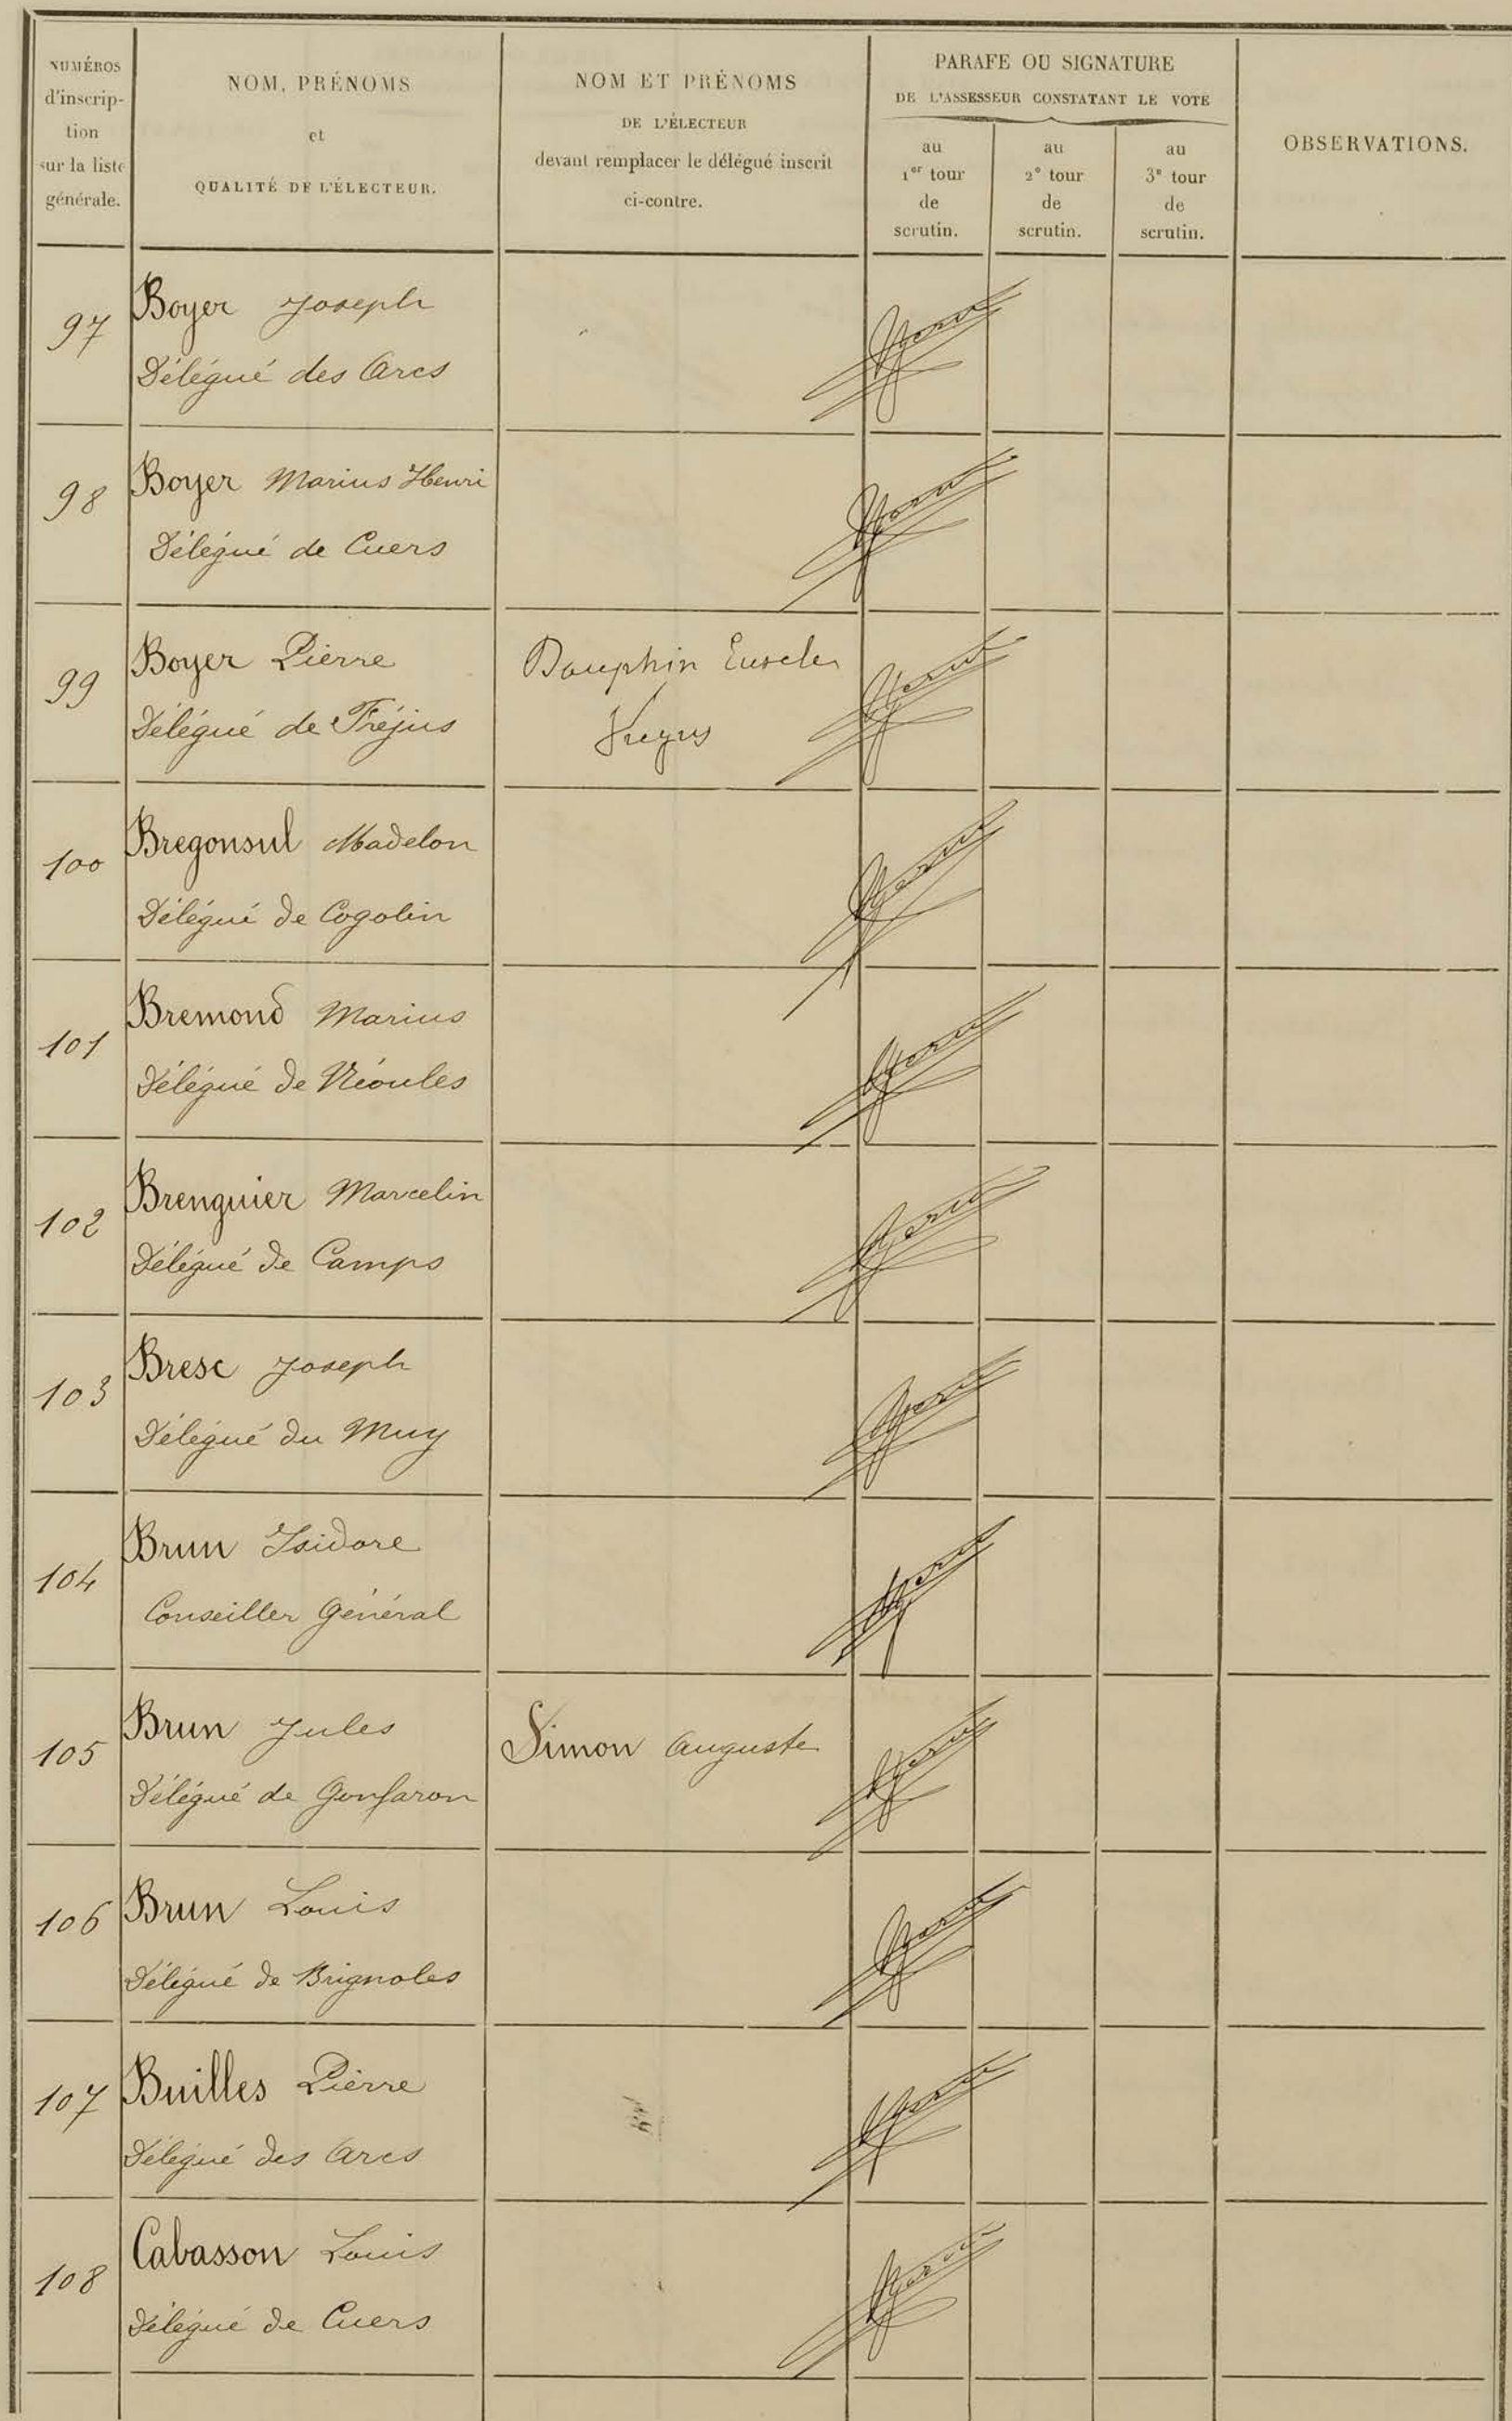 NUMÉROS
d'inscrip-
tion
sur la liste
générale.
NOM, PRÉNOMS
et
QUALITÉ DE L'ÉLECTEUR.
NOM ET PRÉNOMS
DE L'ÉLECTEUR
devant remplacer le délégué inscrit
ci-contre.
PARAFE OU SIGNATURE
DE L'ASSESSEUR CONSTATANT LE VOTE
au
1er tour
de
scrutin.
au
2e tour
de
scrutin.
au
3e tour
de
scrutin.
OBSERVATIONS.
97 Boyer Joseph
Délégué des Arcs
98 Boyer Marius Henri
Délégué de Cuers
99 Boyer Pierre Dauphin
Délégué de Fréjus
100 Bregonsul Madelon
Délégué de Cogolin
101 Bremond Marius
Délégué de Néoules
102 Brenguier Marcelin
Délégué de Camps
103 Bresc Joseph
Délégué du Muy
104 Brun Isidore
Conseiller Général
105 Brun Jules Simon Auguste
Délégué de Gonfaron
106 Brun Louis
Délégué de Brignoles
107 Builles Pierre
Délégué des Arcs
108 Cabasson Louis
Délégué de Cuers